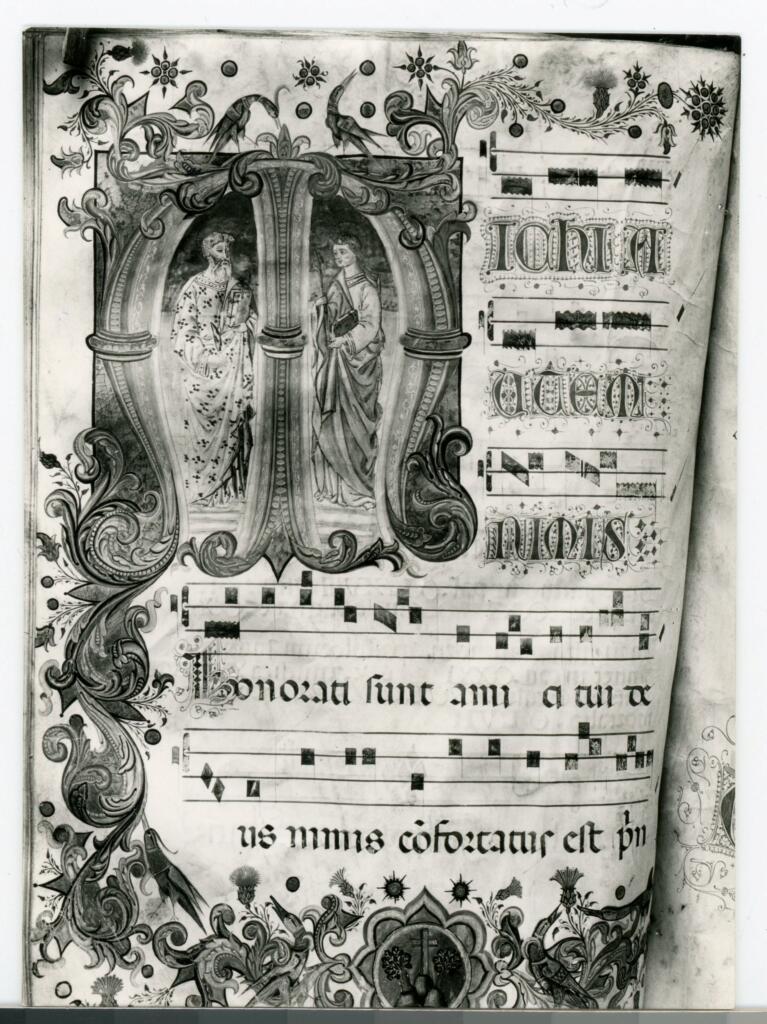 M
ICHI A
UTEM
NIMIS
honorati sunt ami ci tui de
us nimis cōfortatus est p̄n